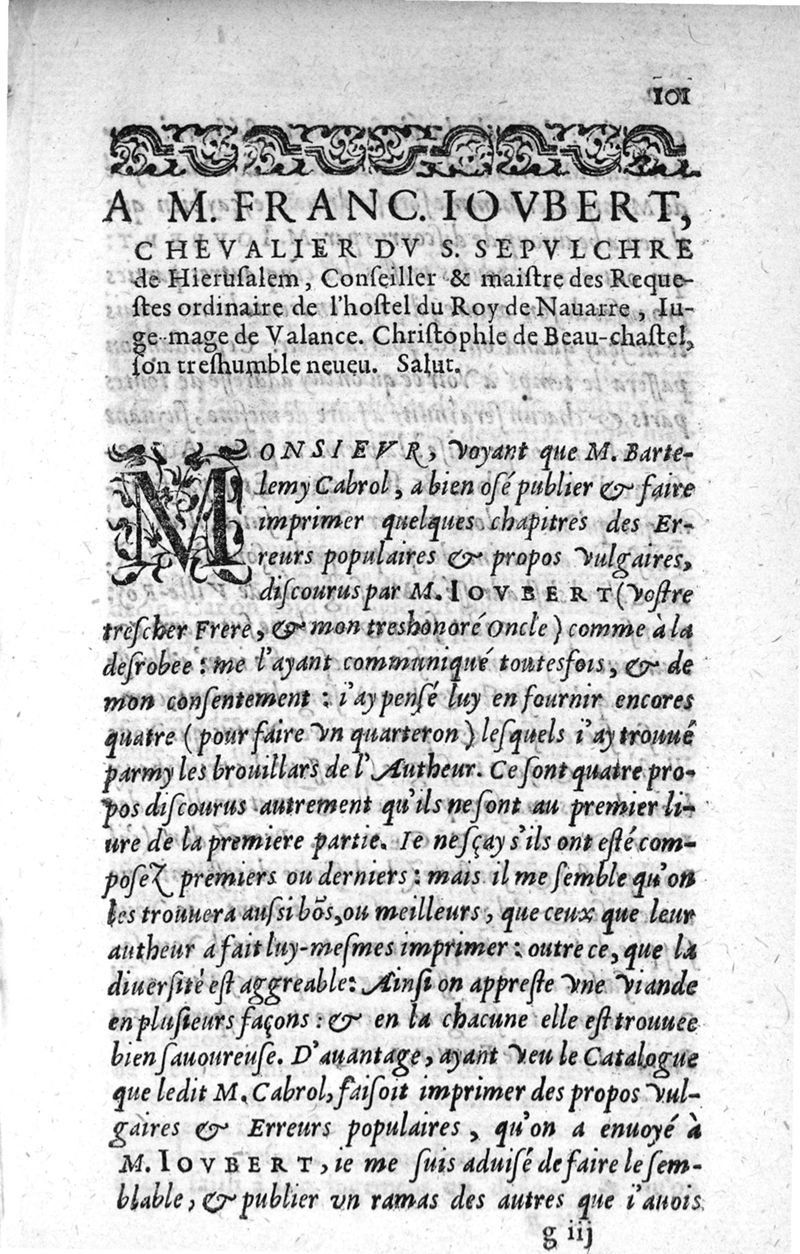 101
A M. FRANC. IOVBERT,
CHEVALIER DV S. SEPVLCHRE
de Hierusalem, Conseiller & maistre des Reque-
stes ordinaire de l'hostel du Roy de Nauarre, Iu-
ge-mage de Valance. Christophle de Beau-chastel,
son treshumble neueu. Salut.
MONSIEVR, voyant que M. Barte-
lemy Cabrol, a bien osé publier & faire
imprimer quelques chapitres des Er-
reurs populaires & propos vulgaires,
discourus par M. IOVBERT (vostre
trescher Frere, & mon treshonoré Oncle) comme à la
desrobee: me l'ayant communiqué toutesfois, & de
mon consentement: i'ay pensé luy en fournir encores
quatre (pour faire vn quarteron) lesquels i'ay trouué
parmy les brouillars de l'Autheur. Ce sont quatre pro-
pos discourus autrement qu'ils ne sont au premier li-
ure de la premiere partie. Ie ne sçay s'ils ont esté com-
posez premiers ou derniers: mais il me semble qu'on
les trouuera aussi bõs, ou meilleurs, que ceux que leur
autheur a fait luy-mesmes imprimer: outre ce, que la
diuersité est aggreable: Ainsi on appreste vne viande
en plusieurs façons: & en la chacune elle est trouuee
bien sauoureuse. D'auantage, ayant veu le Catalogue
que ledit M. Cabrol, faisoit imprimer des propos vul-
gaires & Erreurs populaires, qu'on a enuoyé à
M. IOVBERT, ie me suis aduisé de faire le sem-
blable, & publier vn ramas des autres que i'auois
g iij